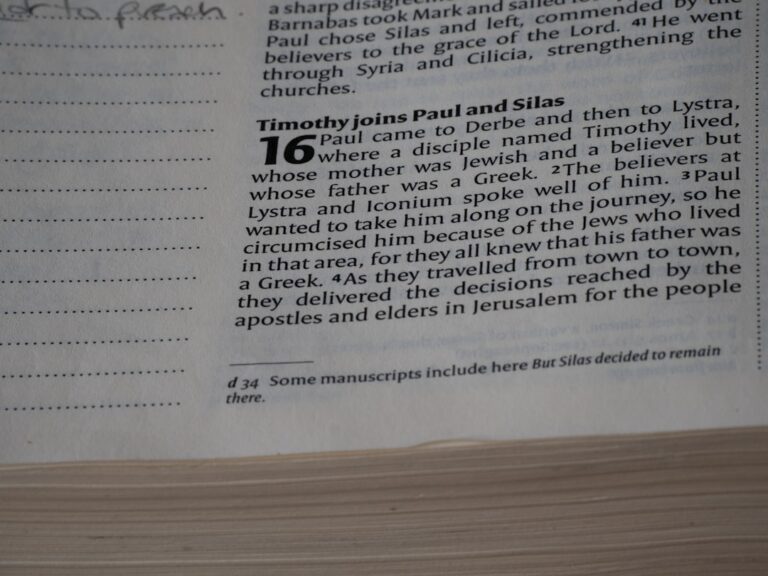 to preach.
a sharp disagreem
Barnabas took Mark and sailed for
Paul chose Silas and left, commended by the
believers to the grace of the Lord. 41 He went
through Syria and Cilicia, strengthening the
churches.
Timothy joins Paul and Silas
16 Paul came to Derbe and then to Lystra,
where a disciple named Timothy lived,
whose mother was Jewish and a believer but
whose father was a Greek. 2 The believers at
Lystra and Iconium spoke well of him. 3 Paul
wanted to take him along on the journey, so he
circumcised him because of the Jews who lived
in that area, for they all knew that his father was
a Greek. 4 As they travelled from town to town,
they delivered the decisions reached by the
apostles and elders in Jerusalem for the people
d 34 Some manuscripts include here But Silas decided to remain
there.